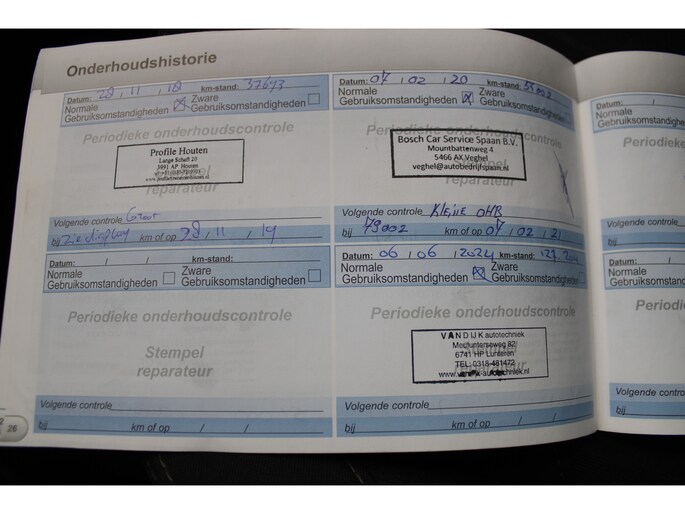 Onderhoudshistorie
Datum: 28 / 11 / 18 km-stand: 37673
Normale Gebruiksomstandigheden Zware Gebruiksomstandigheden
Periodieke onderhoudscontrole
Profile Houten
Lange Schaft 20
3991 AP Houten
Stempel
reparateur
Volgende controle Groot
bij Zie display km of op 28 / 11 / 19
Datum: 07 / 02 / 20 km-stand: 55002
Normale Gebruiksomstandigheden Zware Gebruiksomstandigheden
Periodieke onderhoudscontrole
Bosch Car Service Spaan B.V.
Mountbattenweg 4
5466 AX Veghel
veghel@autobedrijfspaan.nl
reparateur
Volgende controle Kleine OHB
bij 79002 km of op 07 / 02 / 21
Datum: / / km-stand:
Normale Gebruiksomstandigheden Zware Gebruiksomstandigheden
Periodieke onderhoudscontrole
Stempel
reparateur
Volgende controle
bij km of op / /
Datum: 06 / 06 / 2024 km-stand:
Normale Gebruiksomstandigheden Zware Gebruiksomstandigheden
Periodieke onderhoudscontrole
VAN DIJK autotechniek
Meulunterseweg 82
6741 HP Lunteren
TEL: 0318-481472
www.vandijk-autotechniek.nl
Volgende controle
bij km of op / /
26
Datum: /
Normale
Gebruiksomstandig
Periodi
Volgende controle
bij
Datum: /
Normale
Gebruiksomstandig
Periodi
Volgende controle
bij